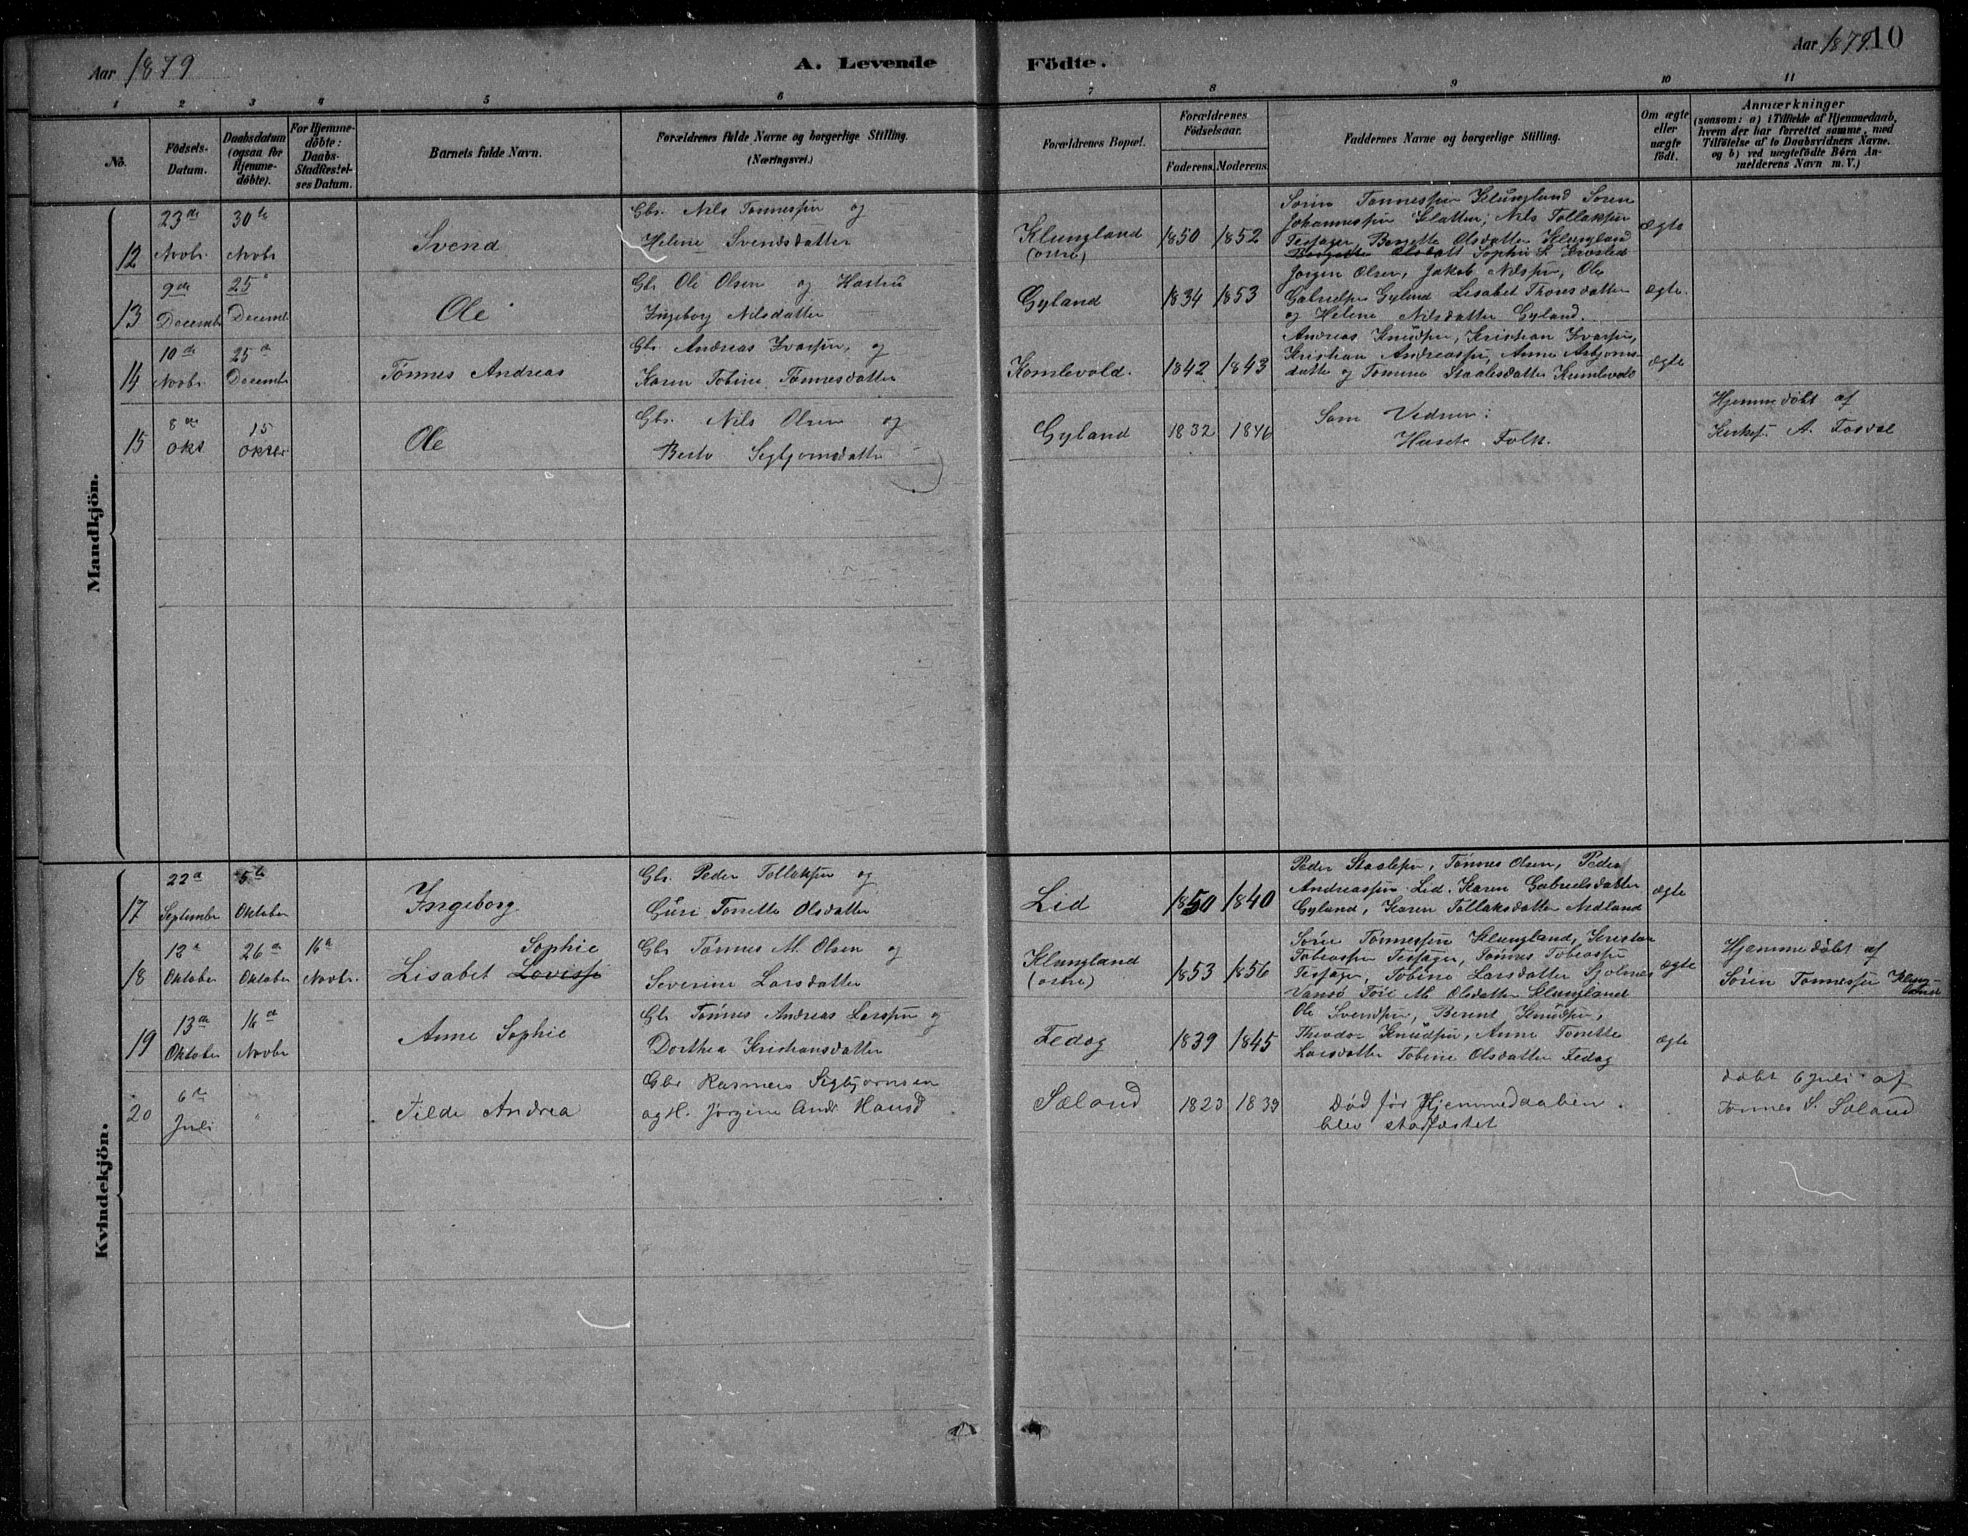 Aar 1879
A. Levende
Födte.
Aar 1879. 10
1 2 3 4 5 6 7 8 9 10 11
No.
Födsels-Datum.
Daabsdatum (ogsaa for Hjemmedöbte).
For Hjemmedöbte: Daabs-Stadfæstelses Datum.
Barnets fulde Navn.
Forældrenes fulde Navne og borgerlige Stilling. (Næringsvei.)
Forældrenes Bopæl.
Forældrenes Födselsaar.
Faderens. Moderens.
Faddernes Navne og borgerlige Stilling.
Om ægte eller uægte födt.
Anmærkninger (saasom: a) i Tilfælde af Hjemmedaab, hvem der har forrettet samme, med Tilföielse af to Daabsvidners Navne. og b) ved uægtefödte Börn Anmelderens Navn m. V.)
Mandkjön.
12 23de Novbr. 30te Novbr. Svend
Gbr. Nils Tønnessen og
Helene Svendsdatter
Klungland (østre) 1850 1852
Søren Tønnessen Klungland Søren
Johannessen Slatten, Nils Tollaksen
Tesager, Borgitte Olsdatter Klungland
Borgitte Olsdatt Sophie L.
ægte
13 9de Decemb 25 Decemb Ole
Gbr Ole Olsen og Hustru
Ingeborg Nilsdatter
Gyland 1834 1853
Jørgen Olsen, Jakob Nilsen, Ole
Gabrielsen Gyland Lisabet Thorsdatter
og Helene Nilsdatter Gyland.
ægte.
14 10de Novbr. 25de Decemb Tønnes Andreas
Gbr. Andreas Ivarsen, og
Karen Tobine Tønnesdatter
Komlevold. 1842 1843
Andreas Knudsen, Kristian Ivarsen,
Kristian Andreassen, Anne Asbjørns-
datter og Tomine Staalesdatter Kumlevold
ægte
15 8de Okt 15 Oktober Ole
Gbr. Nils Olsen og
Berte Sigbjørnsdatter
Gyland 1832 1846
Som Vidner:
Husets Folk.
Hjemmedøbt af
Kirkes. A. Fosdal
Kvindekjön.
17 22de September 5te Oktober Ingeborg
Gbr. Peder Tollaksen og
Guri Tonette Olsdatter
Lid 1850 1840
Peder Staalesen, Tønnes Olsen, Peder
Andreassen Lid, Karen Gabrielsdatter
Gyland, Karen Tollaksdatter Nedland
ægte
18 12te Oktober 26de Oktober 16de Novbr. Lisabet Lovisse Sophie
Gbr Tønnes M. Olsen og
Severine Larsdatter
Klungland (østre) 1853 1856
Søren Tønnessen Klungland, Kristen
Tobiassen Tesager, Tønnes Tobiassen
Tesager, Tobine Larsdatter Sjølnes
Vansø Tori M. Olsdatter Klungland
ægte
Hjemmedøbt af
Søren Tønnessen Klung-
land
19 13de Oktober 16de Novbr Anne Sophie
Gbr Tønnes Andreas Larssen og
Dorthea Kristiansdatter
Fedog 1839 1845
Ole Svendsen, Berent Knudsen,
Theodor Knudsen, Anne Tonette
Larsdatter Tobine Olsdatter Fedog
ægte
20 6te Juli " Tilde Andrea
Gbr Rasmus Sigbjørnsen
og H. Jørgine Andr Hansd
Sæland 1823 1839
Død før Hjemmedaaben
blev stadfæstet
døbt 6 Juli af
Tønnes S. Sæland